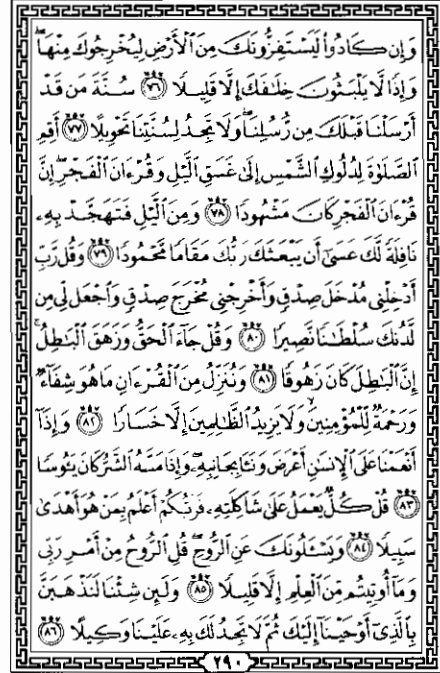 وَإِن كَادُوا۟ لَيَسْتَفِزُّونَكَ مِنَ ٱلْأَرْضِ لِيُخْرِجُوكَ مِنْهَا ۖ
وَإِذًا لَّا يَلْبَثُونَ خِلَـٰفَكَ إِلَّا قَلِيلًا ﴿٧٦﴾ سُنَّةَ مَن قَدْ
أَرْسَلْنَا قَبْلَكَ مِن رُّسُلِنَا ۖ وَلَا تَجِدُ لِسُنَّتِنَا تَحْوِيلًا ﴿٧٧﴾ أَقِمِ
ٱلصَّلَوٰةَ لِدُلُوكِ ٱلشَّمْسِ إِلَىٰ غَسَقِ ٱلَّيْلِ وَقُرْءَانَ ٱلْفَجْرِ ۖ إِنَّ
قُرْءَانَ ٱلْفَجْرِ كَانَ مَشْهُودًا ﴿٧٨﴾ وَمِنَ ٱلَّيْلِ فَتَهَجَّدْ بِهِۦ
نَافِلَةً لَّكَ عَسَىٰٓ أَن يَبْعَثَكَ رَبُّكَ مَقَامًا مَّحْمُودًا ﴿٧٩﴾ وَقُل رَّبِّ
أَدْخِلْنِى مُدْخَلَ صِدْقٍ وَأَخْرِجْنِى مُخْرَجَ صِدْقٍ وَٱجْعَل لِّى مِن
لَّدُنكَ سُلْطَـٰنًا نَّصِيرًا ﴿٨٠﴾ وَقُلْ جَآءَ ٱلْحَقُّ وَزَهَقَ ٱلْبَـٰطِلُ ۚ
إِنَّ ٱلْبَـٰطِلَ كَانَ زَهُوقًا ﴿٨١﴾ وَنُنَزِّلُ مِنَ ٱلْقُرْءَانِ مَا هُوَ شِفَآءٌ
وَرَحْمَةٌ لِّلْمُؤْمِنِينَ ۙ وَلَا يَزِيدُ ٱلظَّـٰلِمِينَ إِلَّا خَسَارًا ﴿٨٢﴾ وَإِذَآ
أَنْعَمْنَا عَلَى ٱلْإِنسَـٰنِ أَعْرَضَ وَنَـَٔا بِجَانِبِهِۦ ۖ وَإِذَا مَسَّهُ ٱلشَّرُّ كَانَ يَـُٔوسًا
﴿٨٣﴾ قُلْ كُلٌّ يَعْمَلُ عَلَىٰ شَاكِلَتِهِۦ فَرَبُّكُمْ أَعْلَمُ بِمَنْ هُوَ أَهْدَىٰ
سَبِيلًا ﴿٨٤﴾ وَيَسْـَٔلُونَكَ عَنِ ٱلرُّوحِ ۖ قُلِ ٱلرُّوحُ مِنْ أَمْرِ رَبِّى
وَمَآ أُوتِيتُم مِّنَ ٱلْعِلْمِ إِلَّا قَلِيلًا ﴿٨٥﴾ وَلَئِن شِئْنَا لَنَذْهَبَنَّ
بِٱلَّذِىٓ أَوْحَيْنَآ إِلَيْكَ ثُمَّ لَا تَجِدُ لَكَ بِهِۦ عَلَيْنَا وَكِيلًا ﴿٨٦﴾
٢٩٠